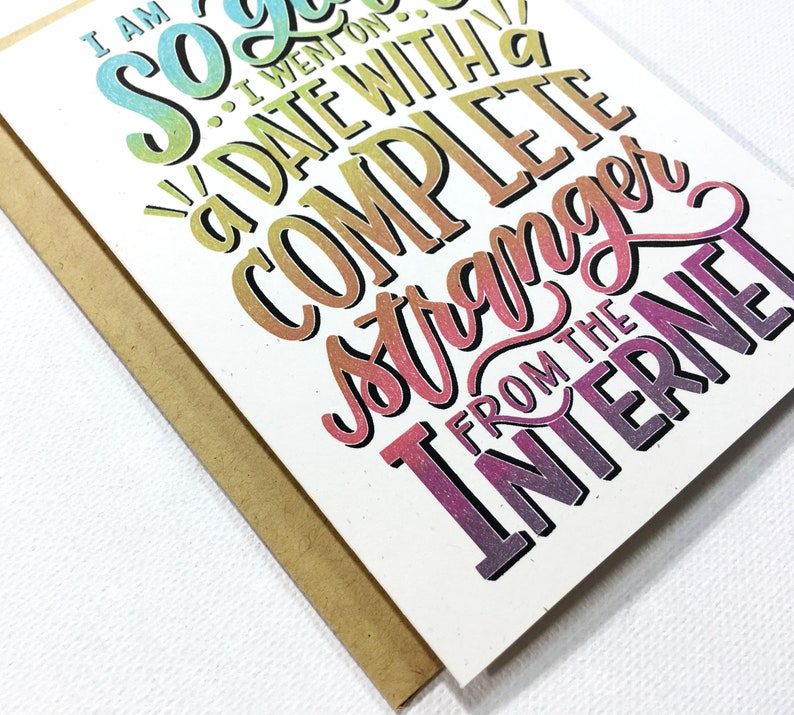 I AM
SO
I WENT ON
a DATE WITH a
COMPLETE
stranger
FROM THE
INTERNET